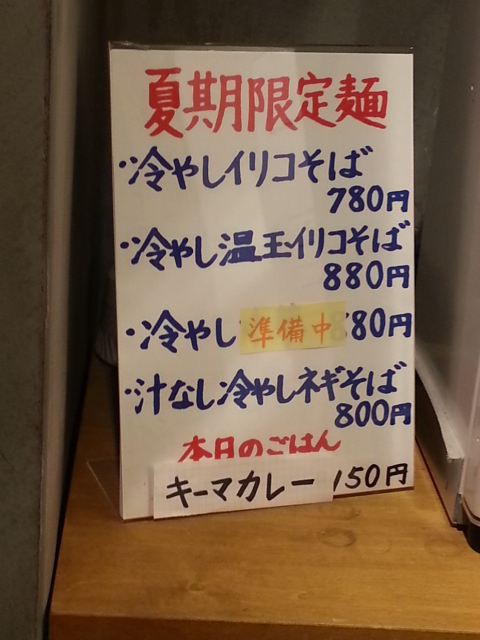 夏期限定麺
・冷やしイリコそば
780円
・冷やし温玉イリコそば
880円
・冷やし 準備中 80円
・汁なし冷やしネギそば
800円
本日のごはん
キーマカレー 150円